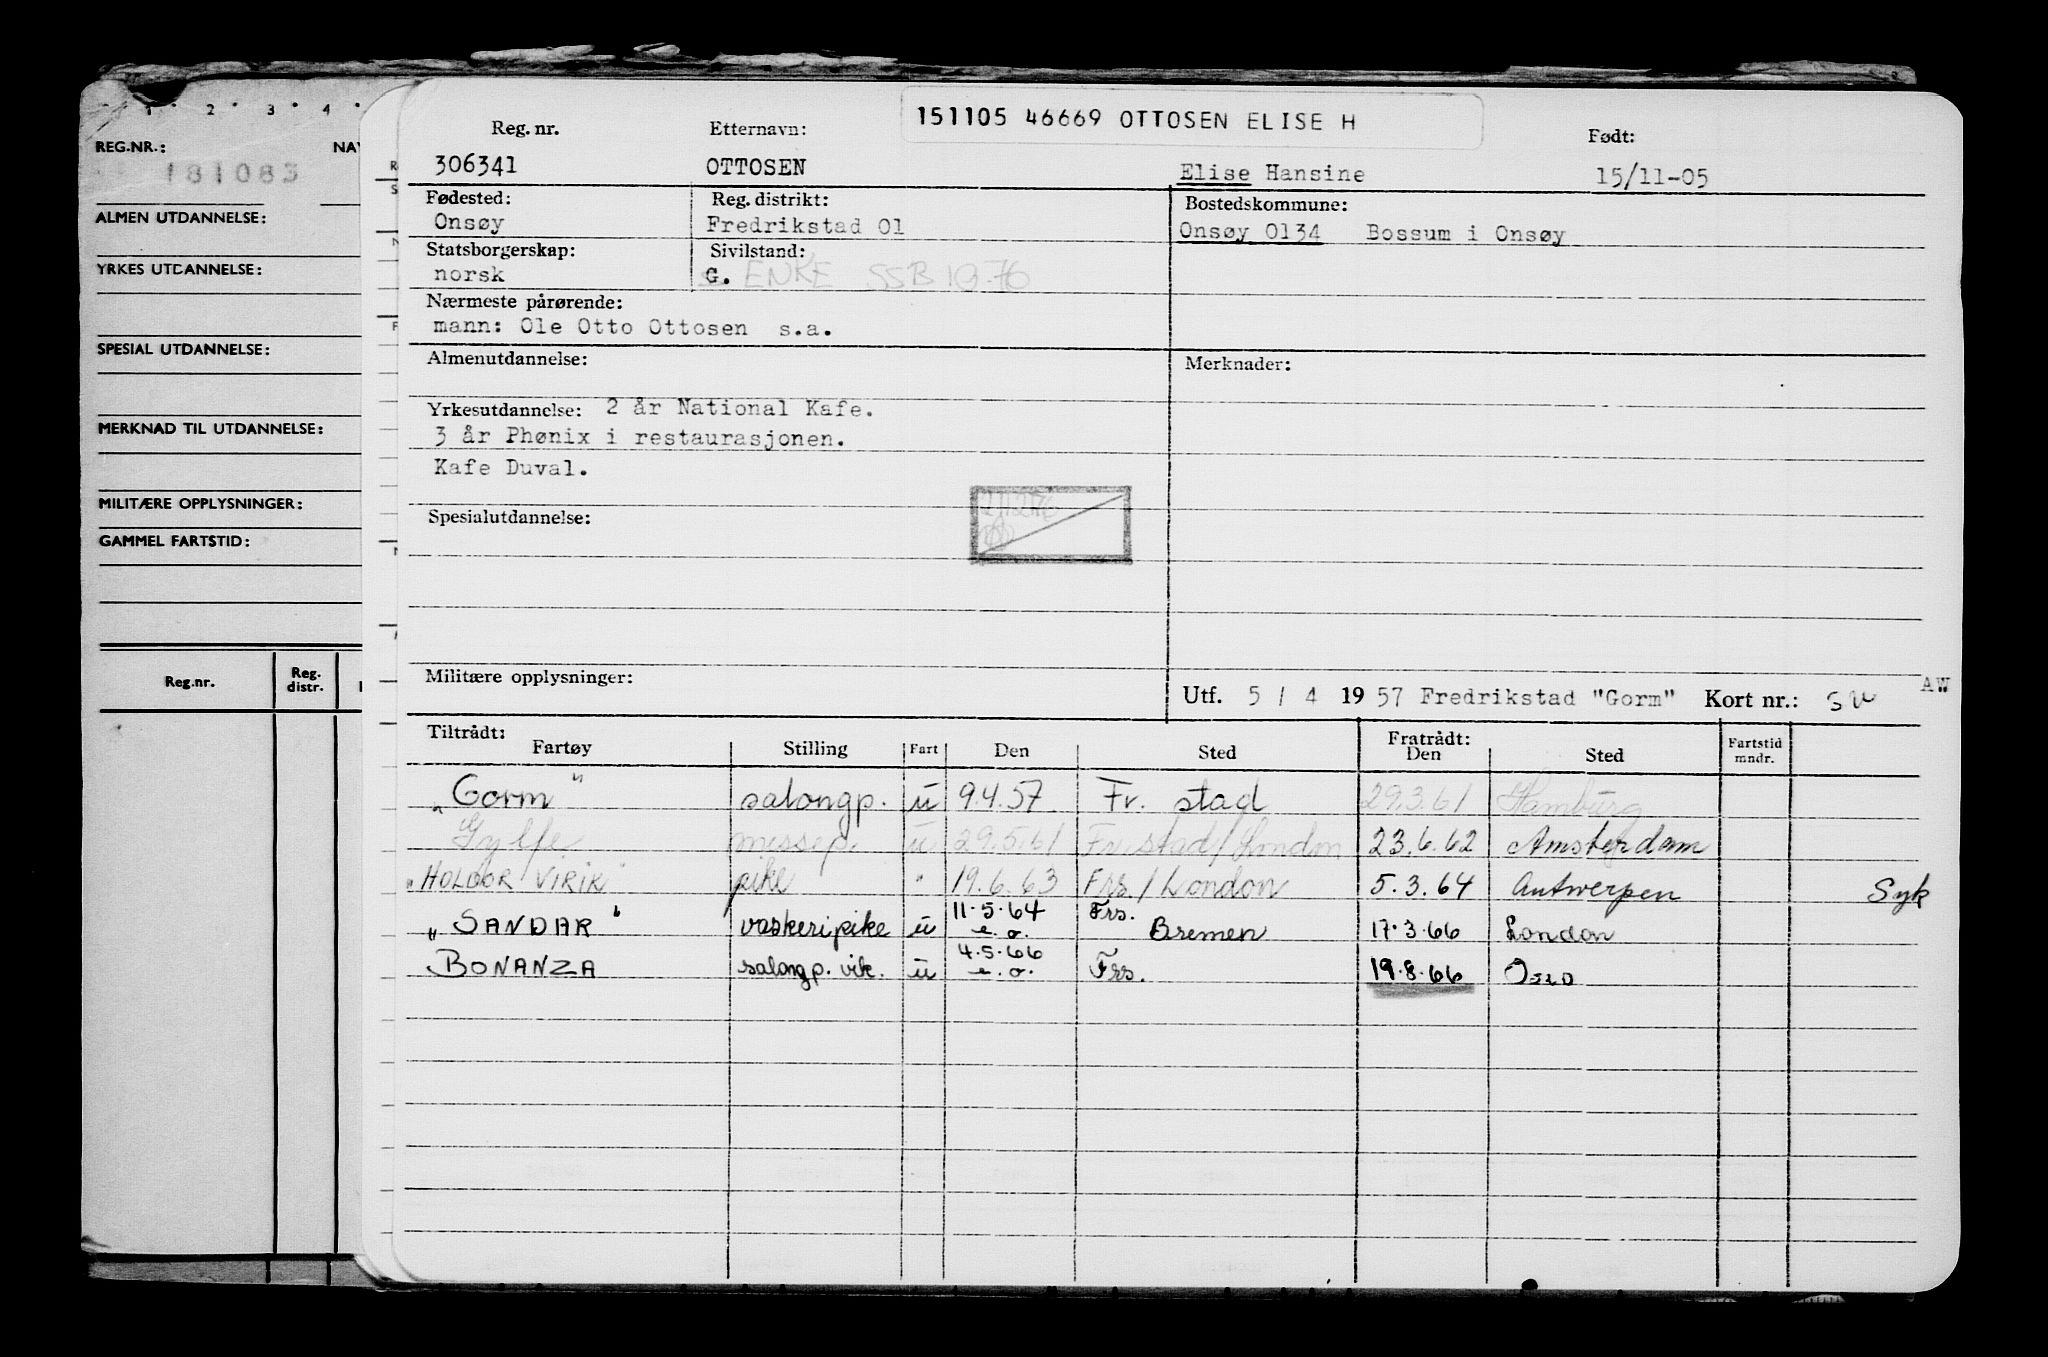 1 2 3 4
REG.NR.:
181083
ALMEN UTDANNELSE:
YRKES UTDANNELSE:
SPESIAL UTDANNELSE:
MERKNAD TIL UTDANNELSE:
MILITÆRE OPPLYSNINGER:
GAMMEL FARTSTID:
Reg.nr. Reg. distr.
151105 46669 OTTOSEN ELISE H
Reg. nr. Etternavn: Født:
306341 OTTOSEN Elise Hansine 15/11-05
Fødested: Reg. distrikt: Bostedskommune:
Onsøy Fredrikstad 01 Onsøy 0134 Bossum i Onsøy
Statsborgerskap: Sivilstand:
norsk G. ENKE SSB 1976
Nærmeste pårørende:
mann: Ole Otto Ottosen s.a.
Almenutdannelse: Merknader:
Yrkesutdannelse: 2 år National Kafe.
3 år Phønix i restaurasjonen.
Kafe Duval.
Spesialutdannelse:
Militære opplysninger:
Utf. 5 / 4 1957 Fredrikstad "Gorm" Kort nr.: AW
Tiltrådt: Fratrådt:
Fartøy Stilling Fart Den Sted Den Sted Fartstid mndr.
"Gorm" salongp. u 9.4.57 Fr. stad 29.3.61 Hamburg
Gylfe messep. u 29.5.61 Fr.stad/London 23.6.62 Amsterdam
"HOLDOR VIRIK" pike " 19.6.63 Frs./London 5.3.64 Antwerpen Syk
"SANDAR" vaskeripike u 11.5.64 e.o. Frs. Bremen 17.3.66 London
BONANZA salongp. vik. u 4.5.66 e.o. Frs. 19.8.66 Oslo